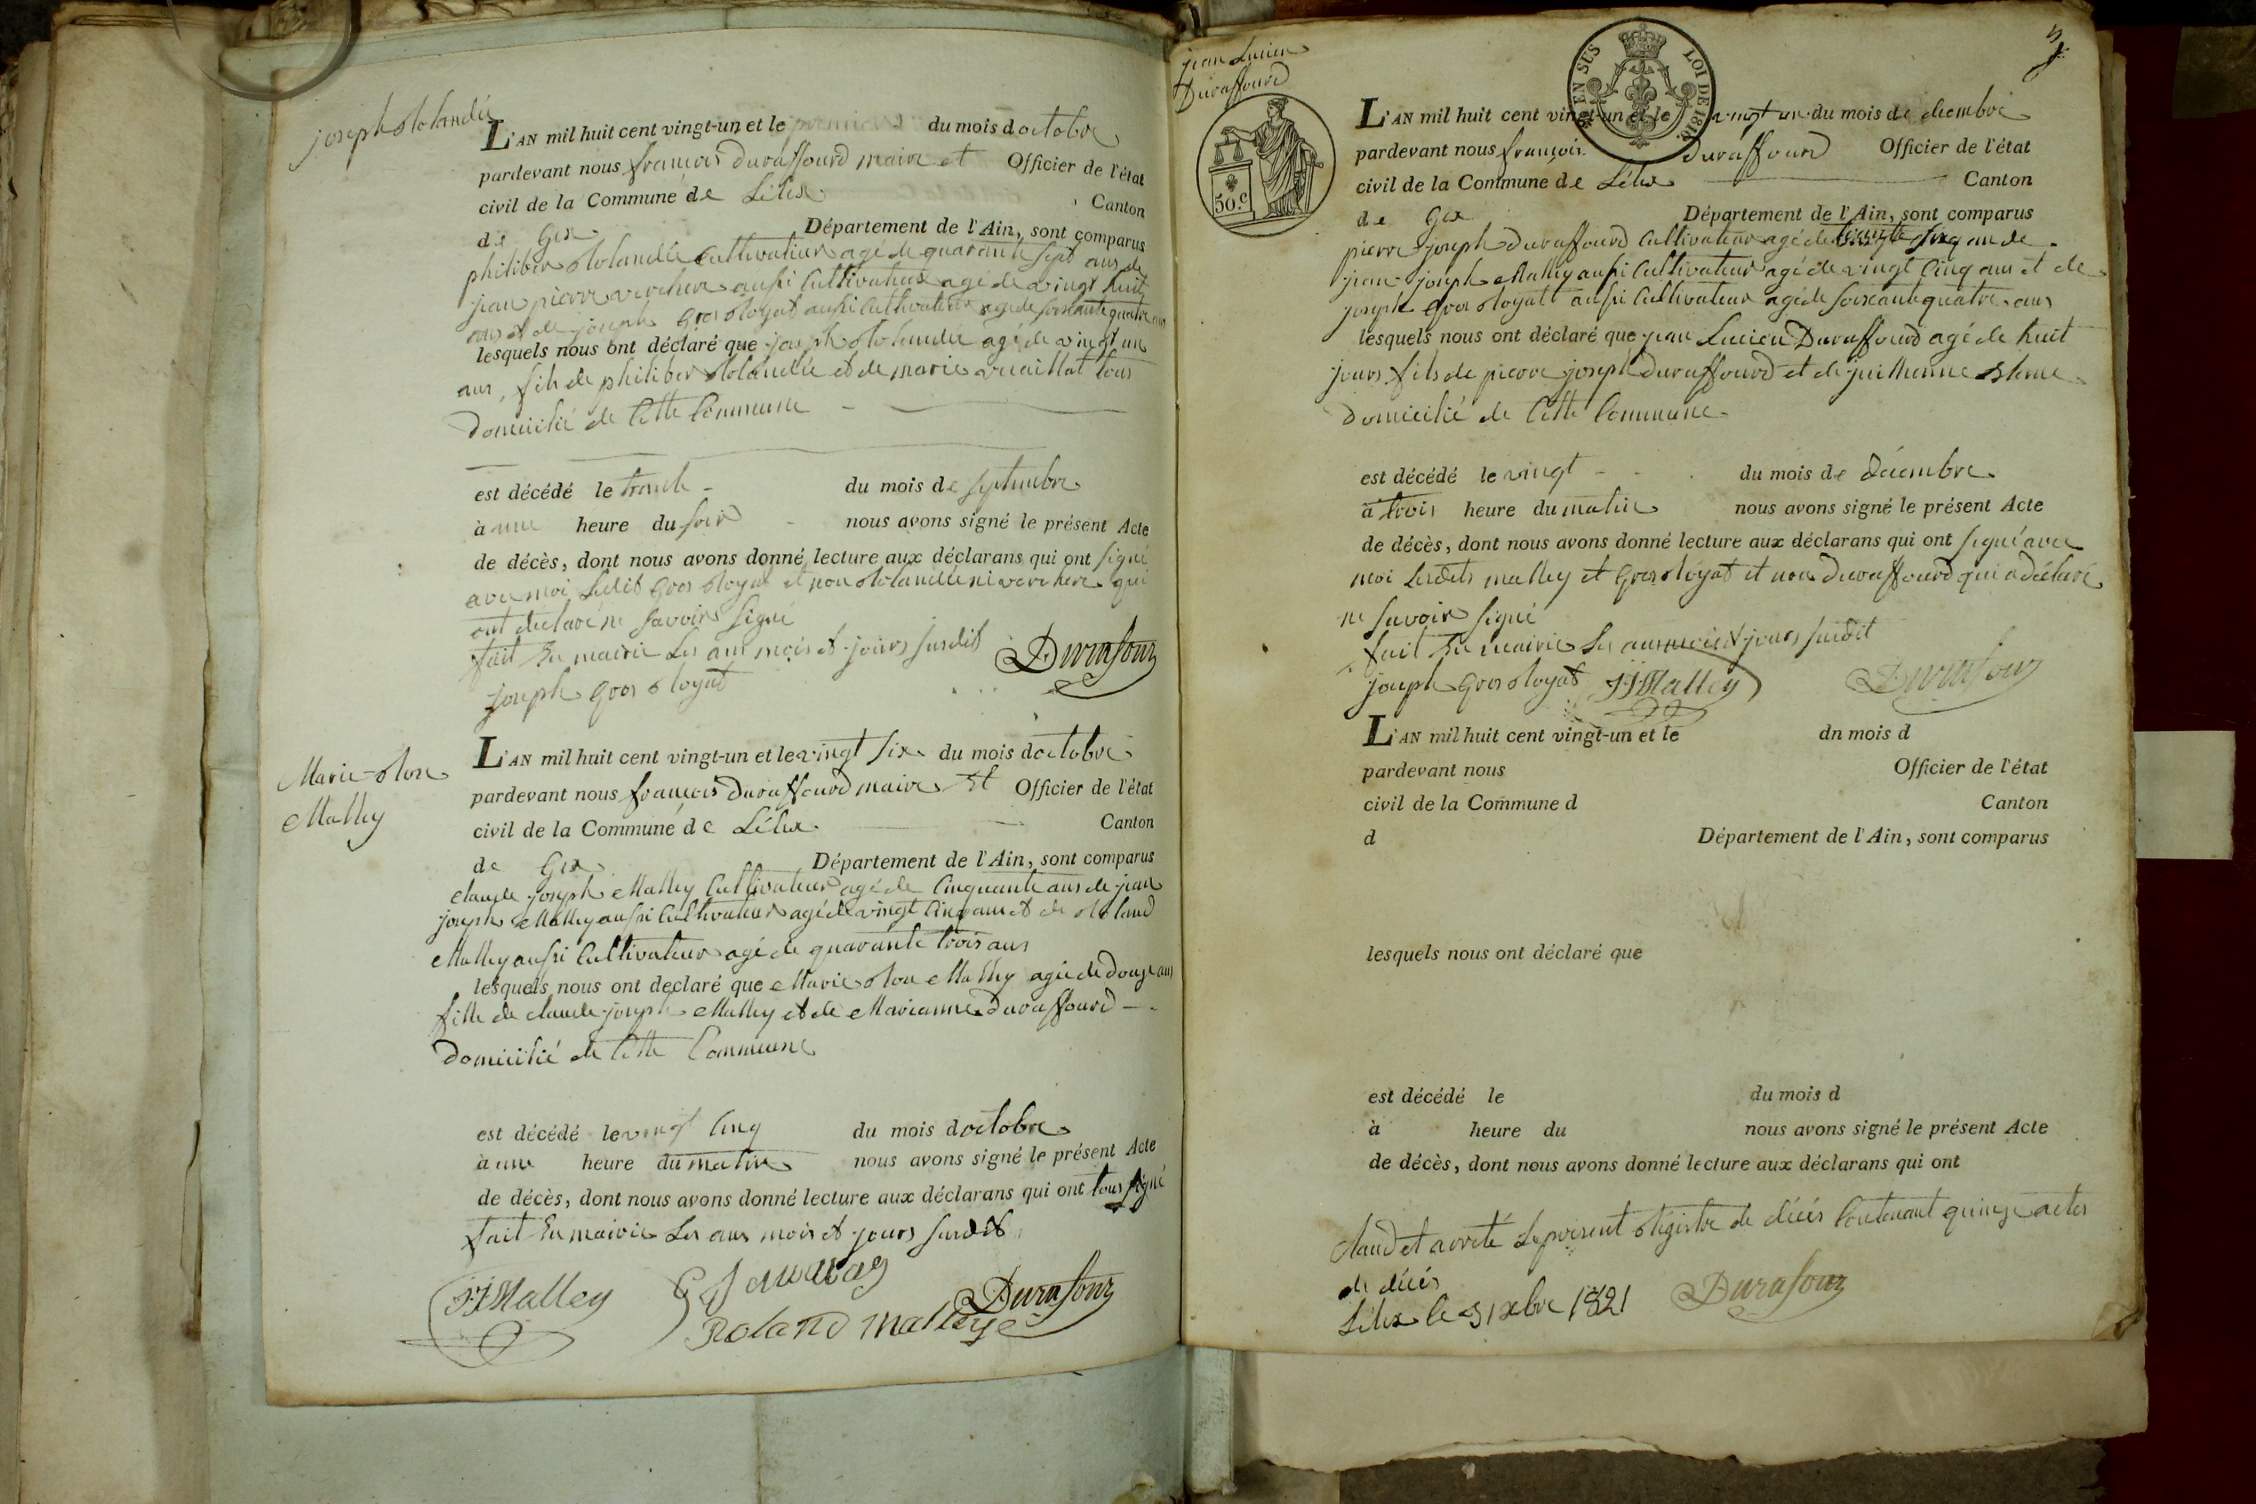 joseph Rolandée
L'AN mil huit cent vingt-un et le premier du mois doctobre
pardevant nous françois Duraffourd maire et Officier de l'état
civil de la Commune de Lélex Canton
de Gex Département de l'Ain, sont comparus
philiber Rolandée Cultivateur agé de quarante sept ans de
jean pierre verchere aussi Cultivateur agé de vingt huit
ans et de joseph Gros Royat aussi Cultivateur agé de soixante quatre ans
lesquels nous ont déclaré que joseph Rolandée agé de vingt un
ans, fils de philiber Rolandée et de marie vuaillat tous
domicilié de Cette Commune
est décédé le trente du mois de septembre
à une heure du soir nous avons signé le présent Acte
de décès, dont nous avons donné lecture aux déclarans qui ont signé
avec moi Ledit Gros Royat et non Rolandée ni verchere qui
ont déclaré ne savoir signé
fait En mairie Les ans mois et jours susdits
joseph Gros Royat Durafour
Marie Rose
Malley
L'AN mil huit cent vingt-un et le vingt six du mois doctobre
pardevant nous françois Duraffourd maire Et Officier de l'état
civil de la Commune de Lélex Canton
de Gex Département de l'Ain, sont comparus
claude joseph Malley Cultivateur agé de Cinquante ans de jean
joseph Malley aussi Cultivateur agé de vingt Cinq ans et de Roland
Malley aussi Cultivateur agé de quarante trois ans
lesquels nous ont declaré que Marie Rose Malley agée de douze ans
fille de claude joseph Malley et de Marianne Duraffourd
domicilié de Cette Commune
est décédé le vingt Cinq du mois doctobre
à une heure du matin nous avons signé le présent Acte
de décès, dont nous avons donné lecture aux déclarans qui ont tous signé
fait En mairie Les ans mois et jours susdits
JJ Malley
Roland Malleye Durafour
jean Lucien
Duraffourd
50.c
EN SUS LOI DE 1816.
L'AN mil huit cent vingt-un et le vingt un du mois de décembre
pardevant nous françois Duraffourd Officier de l'état
civil de la Commune de Lélex Canton
de Gex Département de l'Ain, sont comparus
pierre joseph Duraffourd Cultivateur agé de ans de
jean joseph Malley aussi Cultivateur agé de vingt Cinq ans et de
joseph Gros Royat aussi Cultivateur agé de soixante quatre ans
lesquels nous ont déclaré que jean Lucien Duraffourd agé de huit
jours fils de pierre joseph Duraffourd et de
domicilié de Cette Commune
est décédé le vingt du mois de décembre
à trois heure du matin nous avons signé le présent Acte
de décès, dont nous avons donné lecture aux déclarans qui ont signé avec
moi Lesdits malley et Gros Royat et non Duraffourd qui a déclaré
ne savoir signé
fait En mairie Les ans mois et jours susdit
joseph Gros Royat JJ Malley Durafour
L'AN mil huit cent vingt-un et le dn mois d
pardevant nous Officier de l'état
civil de la Commune d Canton
d Département de l'Ain, sont comparus
lesquels nous ont déclaré que
est décédé le du mois d
à heure du nous avons signé le présent Acte
de décès, dont nous avons donné lecture aux déclarans qui ont
et arreté Le present Régistre de décés Contenant quinze actes
de décés
Lélex le 31 xbre 1821 Durafour